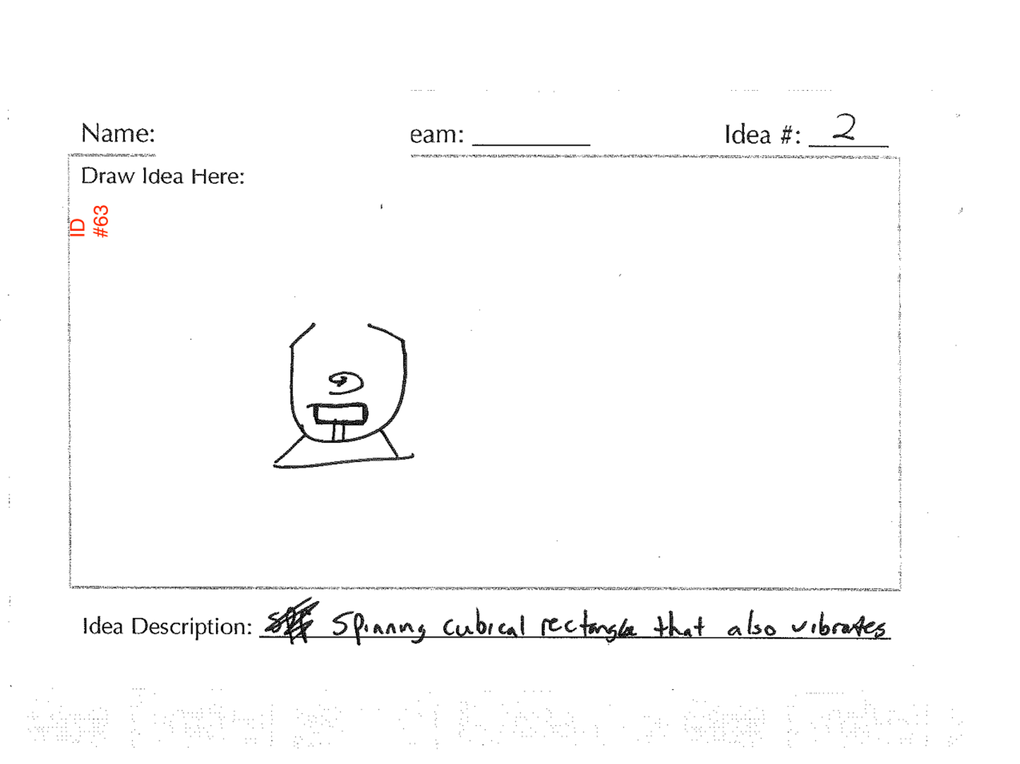 Name:
eam:
Idea #: 2
Draw Idea Here:
ID
#63
Idea Description: Spinning cubical rectangle that also vibrates